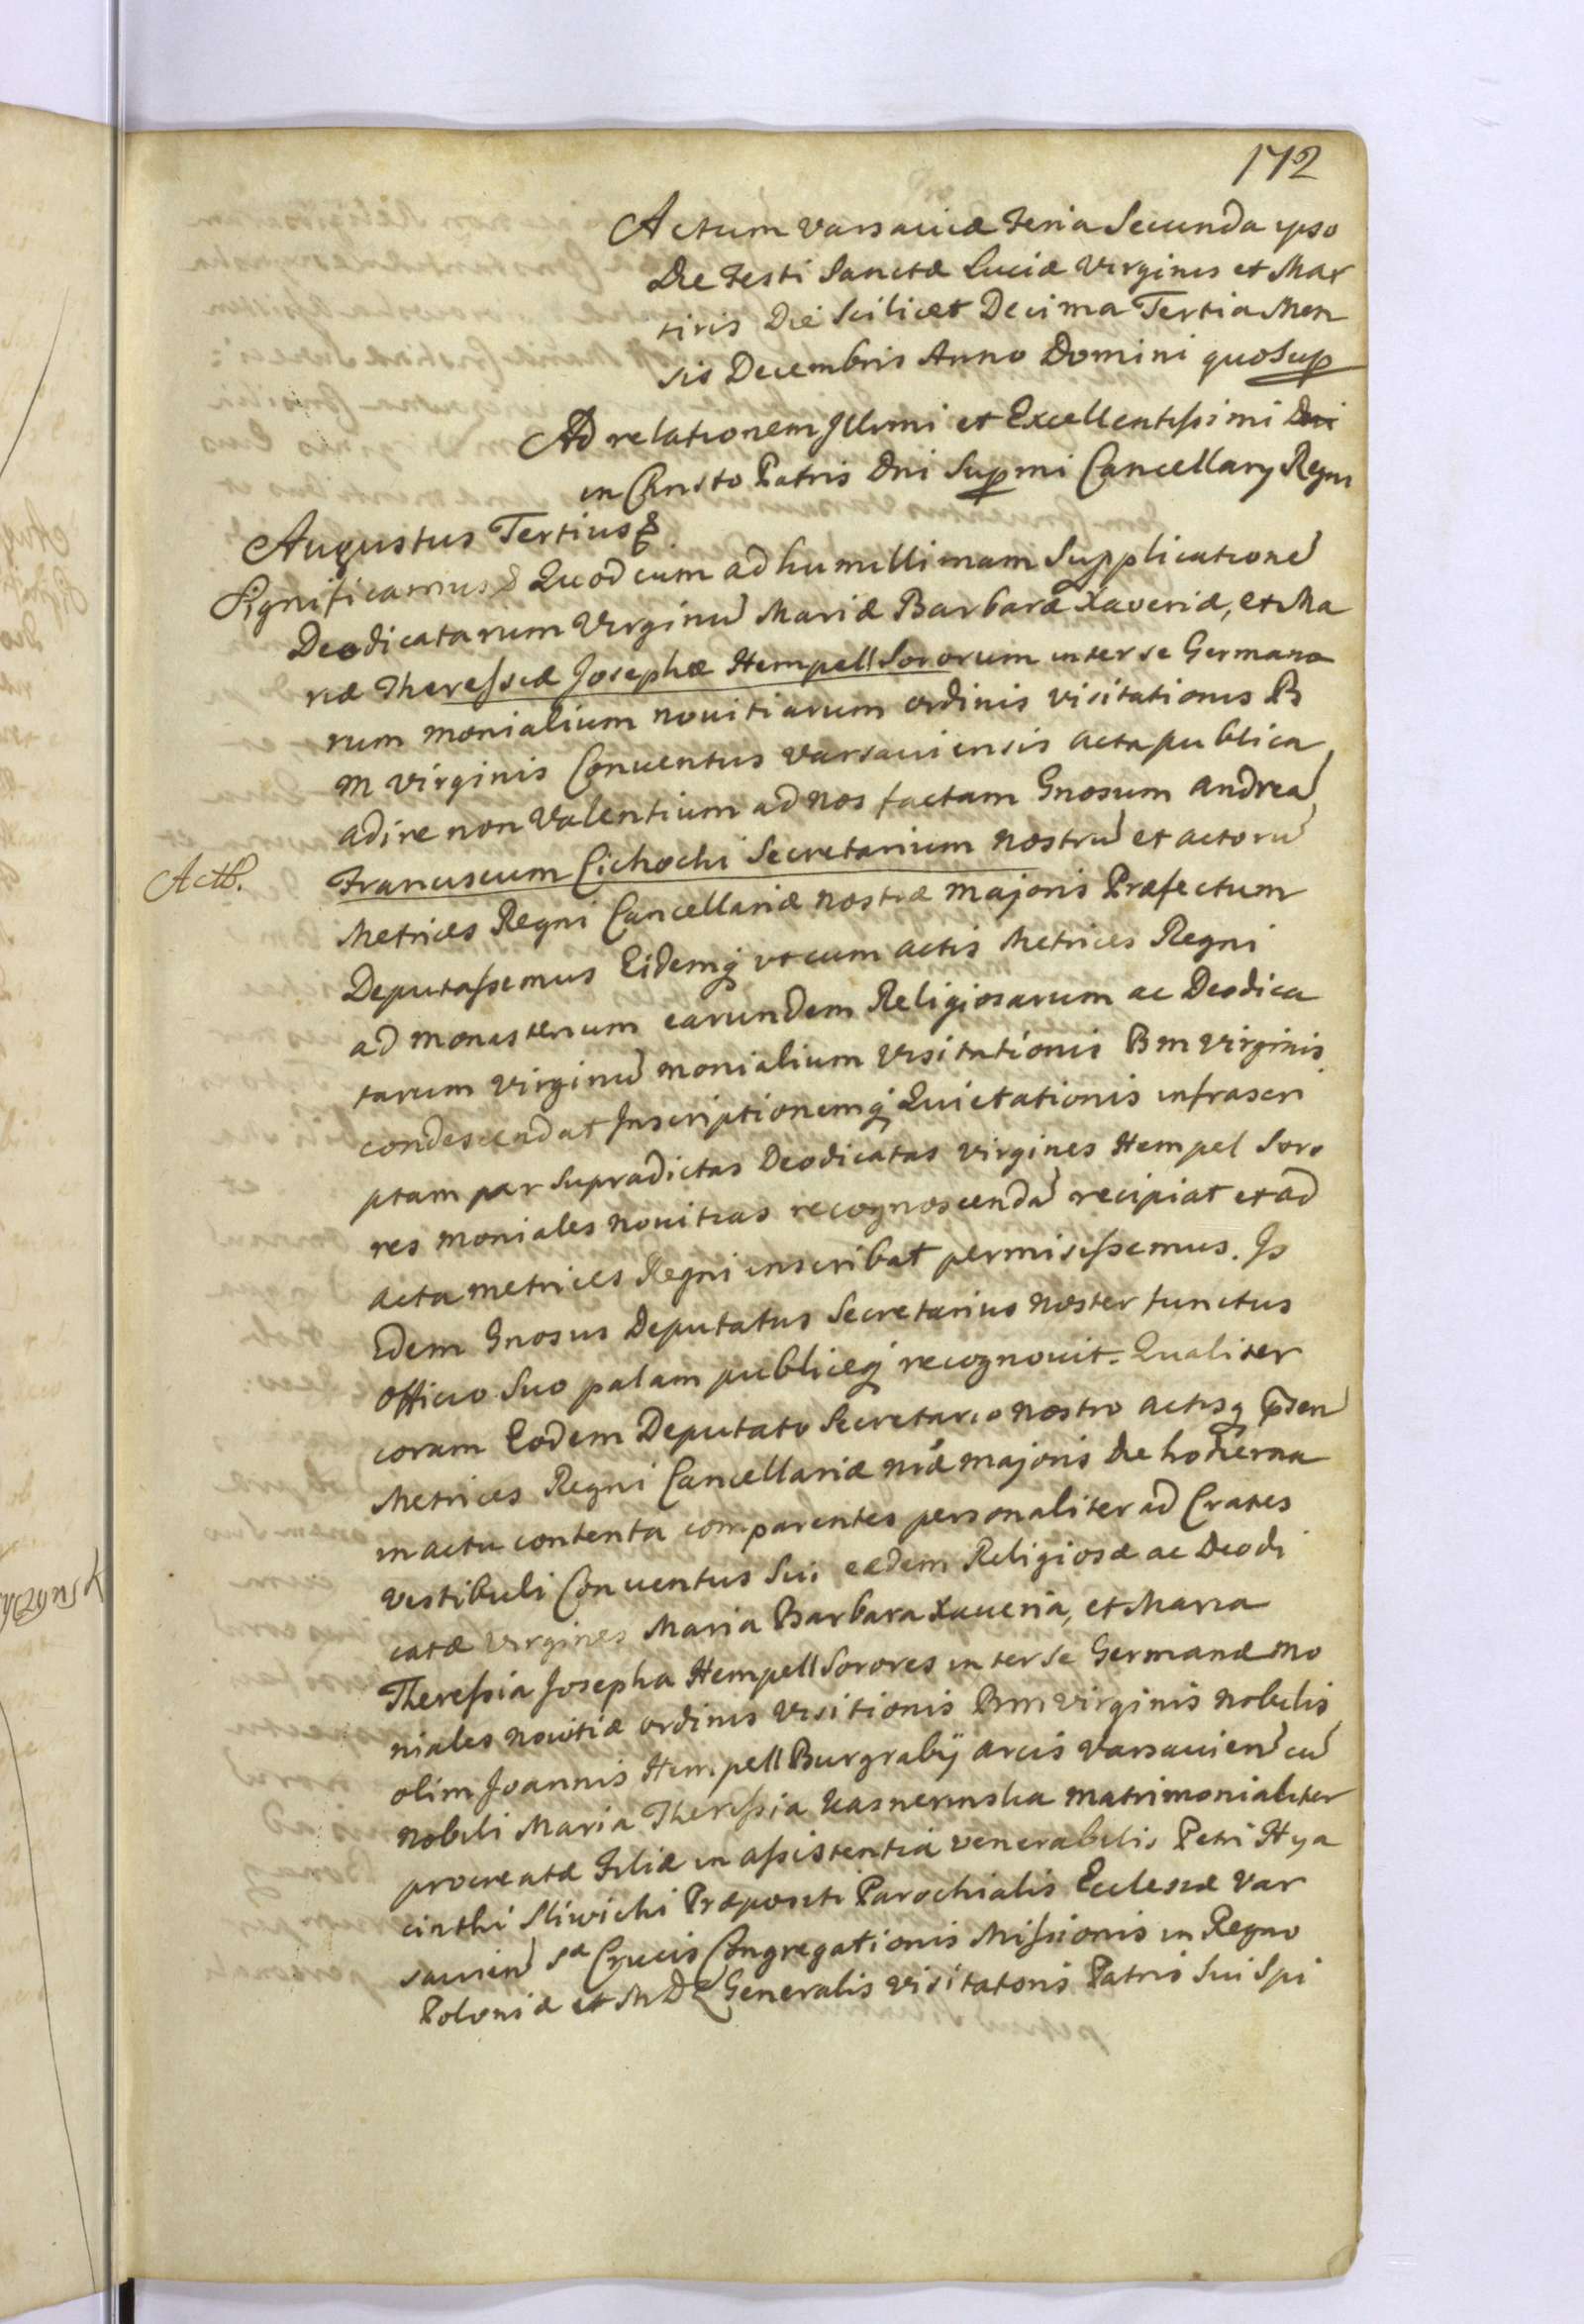 172
Actum Varsaviæ Feria Secunda ipso
Die Festi Sanctæ Luciæ Virginis et Mar
tiris Die Scilicet Decima Tertia Men
sis Decembris Anno Domini quo Sup
Ad relationem Illmi et Excellentissimi
in Christo Patris Dni Supmi Cancellary Regni
Augustus Tertius &
Significamus & Quod cum ad humillimam Supplicatione
Deodicatarum Virginu Mariæ Barbaræ Xaveriæ, et Ma
riæ Theressiæ Josephæ Hempell Sororum inter se Germana
rum monialium novitiarum ordinis visitationis B
M virginis Conventus Varsaviensis acta publica
adire non Valentium ad nos factam Gnosum Andrea
Actb. Franciscum Cichochi Secretarium nostru et actoru
Metrices Regni Cancellariæ nostræ majoris Præfectum
Deputassemus Eidemq ut cum actis Metrices Regni
ad monasterium earundem Religiosarum ac Deodica
tarum virginu monialium visitationis Bm virginis
condescendat Inscriptionemq Quietationis infrascri
ptam par supradictas Deodicatas virgines Hempel Soro
res moniales novitias recognoscenda recipiat et ad
acta metrices Regni inscribat permisissemus. Is
Edem Gnosus Deputatus Secretarius noster functus
officio Suo palam publiceq recognovit. Qualiter
coram Eodem Deputato Secretario nostro actisq psen
Metrices Regni Cancellariæ nræ majoris die hodierna
in actu contenta comparentes personaliter ad Crates
vestibuli Conventus Sui eædem Religiosæ ac Deodi
catæ virgines Maria Barbara Xaveria, et Maria
Theressia Josepha Hempell Sorores inter se Germanæ mo
niales novitiæ ordinis visitionis Bmvirginis nobilis
olim Joannis Hempell Burgrabÿ arcis varsavien cu
nobili Maria Theressia Kasnerinska matrimonialiter
procreatæ Filiæ in assistentia venerabilis Petri Hya
cinthi Sliwichi Præpositi Parochialis Ecclesiæ Var
savien Sæ Crucis Congregationis Missionis in Regno
Poloniæ et M D L Generalis visitatoris Patris Sui Spi